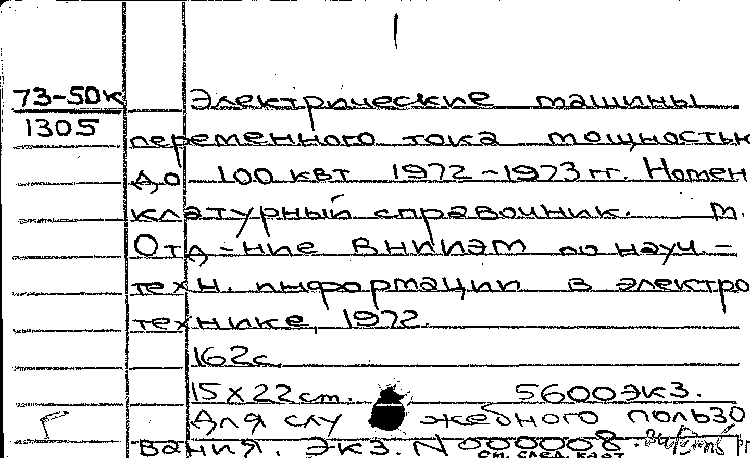 73-50к Электрические машины
1305 переменного тока мощностью
до 100 квт 1972-1973 гг. Номен
клатурный справочник. М.
Отд-ние ВНИИЭМ по науч.-
техн. информации в электро
технике, 1972.
162с.
15х22см. 5600экз.
Для слу жебного пользо
вания. экз. N 000008.
см. след. карт